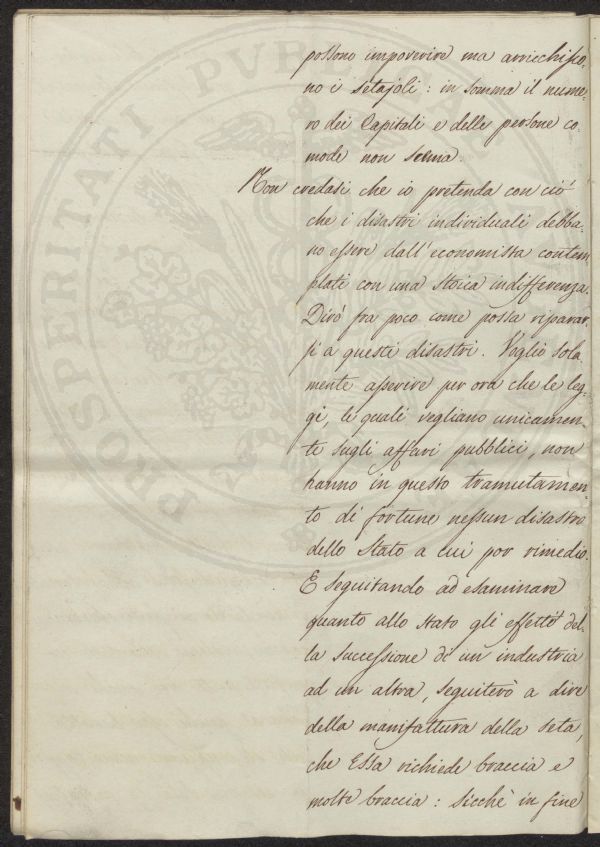 possono impoverire ma arricchisco-
no i setajoli: in somma il nume-
ro dei Capitali e delle persone co-
mode non scema.
Non credasi che io pretenda con ciò
che i disastri individuali debba-
no essere dall'economista contem
plati con una stoica indifferenza.
Dirò fra poco come possa riparar-
si a questi disastri. Voglio sola
mente asserire per ora che le leg-
gi, le quali vegliano unicamen-
te sugli affari pubblici, non
hanno in questo tramutamen-
to di fortune nessun disastro
dello Stato a cui por rimedio.
E seguitando ad esaminare
quanto allo stato gli effetti del-
la successione di un industria
ad un altra, seguiterò a dire
della manifattura della seta,
che Essa richiede braccia e
molte braccia: sicchè in fine
PROSPERITATI PVBLICAE